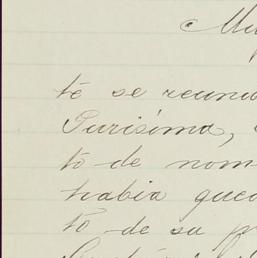 te se reunie
Purisima,
to de nom
habia qued
to de su p